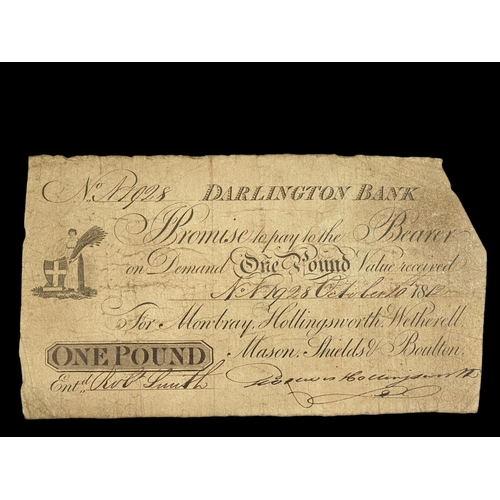 No. A1928 DARLINGTON BANK
I Promise to pay to the Bearer
on Demand One Pound Value received
No. A1928 October 10th 181
For Mowbray, Hollingsworth, Wetherell,
Mason, Shields & Boulton.
ONE POUND
Entd. Robt Smith Hollingsworth